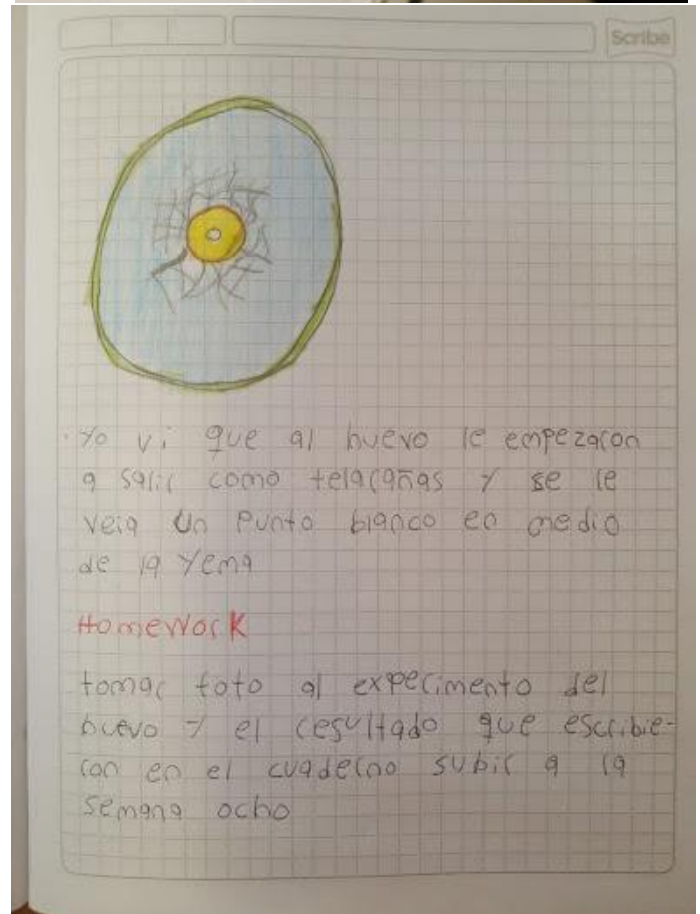 Scribe
· Yo vi que al huevo le empezaron
a salir como telarañas y se le
veia un punto blanco en medio
de la yema
Homework
tomar foto al experimento del
huevo y el resultado que escribie-
ron en el cuaderno subir a la
semana ocho